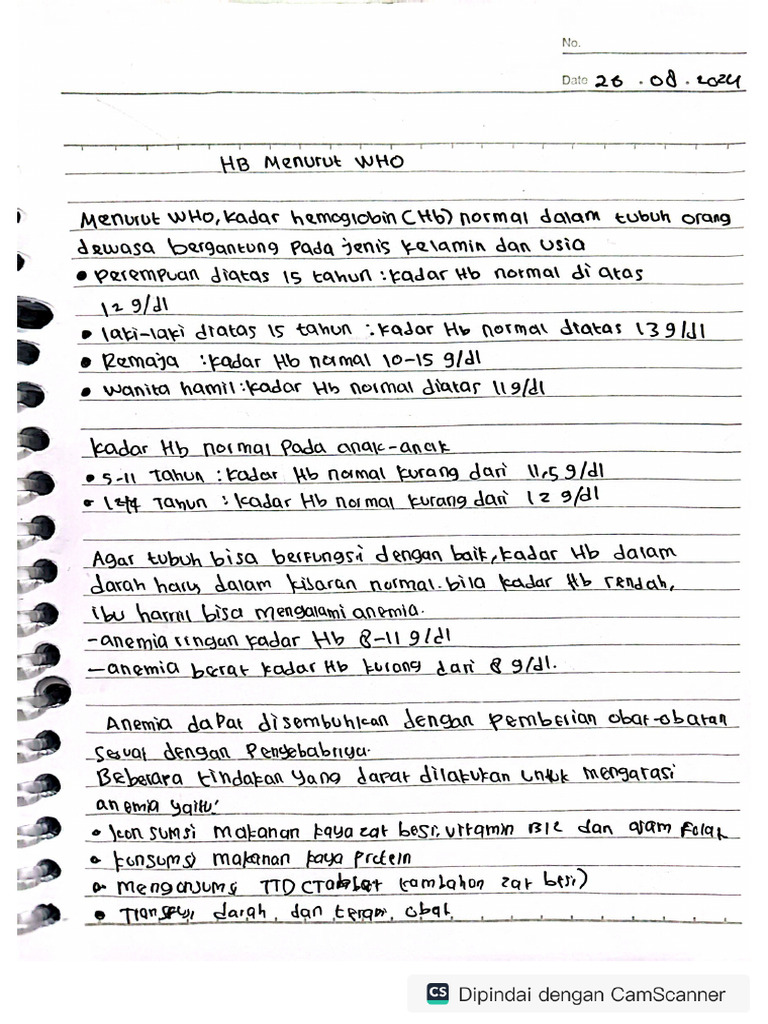 No.
Date 26 . 08 . 2024
HB Menurut WHO
Menurut WHO, kadar hemoglobin (Hb) normal dalam tubuh orang
dewasa bergantung pada jenis kelamin dan usia
• Perempuan diatas 15 tahun : kadar Hb normal di atas
12 g/dl
• laki-laki diatas 15 tahun : kadar Hb normal diatas 13 g/dl
• Remaja : kadar Hb normal 10-15 g/dl
• Wanita hamil : kadar Hb normal diatas 11 g/dl
kadar Hb normal Pada anak-anak
• 5-11 Tahun : kadar Hb normal kurang dari 11,5 g/dl
• Tahun : kadar Hb normal kurang dari 12 g/dl
Agar tubuh bisa berfungsi dengan baik, kadar Hb dalam
darah harus dalam kisaran normal. bila kadar Hb rendah,
ibu hamil bisa mengalami anemia.
-anemia ringan kadar Hb 8-11 g/dl
-anemia berat kadar Hb kurang dari 8 g/dl.
Anemia dapat disembuhkan dengan Pemberian obat-obatan
sesuai dengan Penyebabnya.
Beberapa tindakan yang dapat dilakukan untuk mengatasi
anemia yaitu:
• konsumsi makanan kaya zat besi, vitamin B12 dan asam Folat
• konsumsi makanan kaya Protein
• mengonsumsi TTD (Tablet tambahan zat besi)
• Transfusi darah, dan terapi obat.
CS Dipindai dengan CamScanner